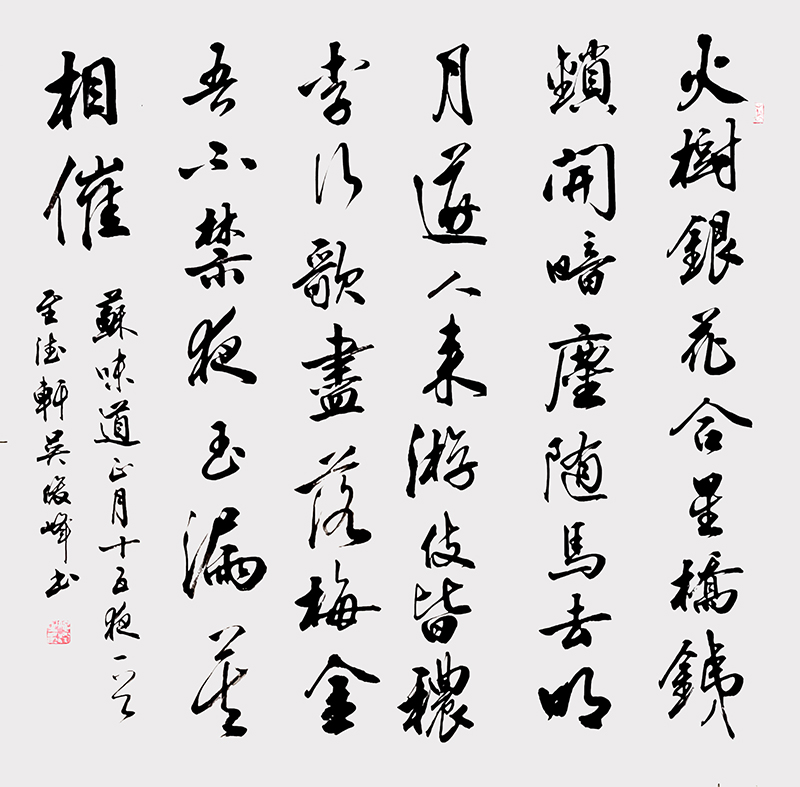 火樹銀花合星橋鐵
鎖開暗塵随馬去明
月逐人来游伎皆穠
李行歌盡落梅金
吾不禁夜玉漏莫
相催
蘇味道正月十五夜一首
至德軒吴俊峰书